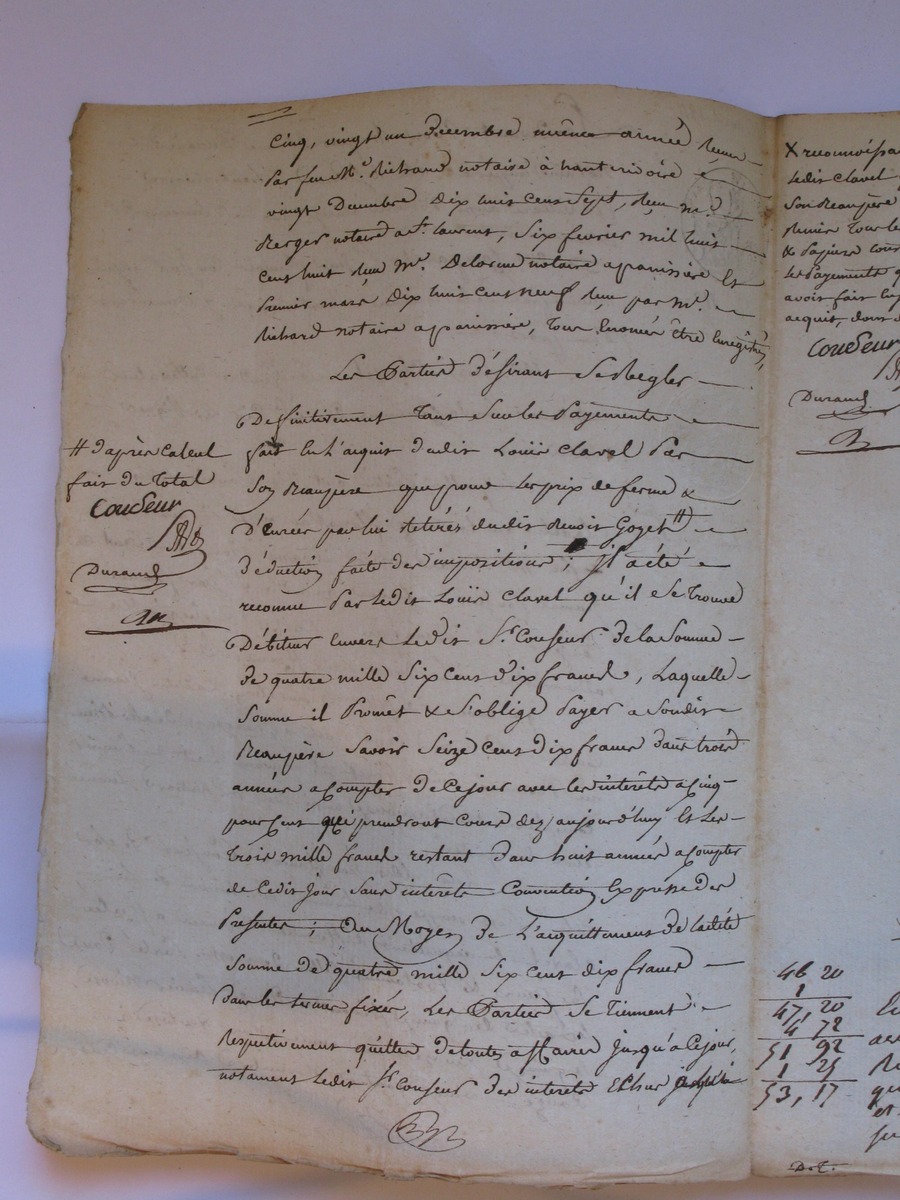 Cinq, vingt un Decembre même année Reçu
Par feu Me. Richard notaire à hauterivoire
vingt Decembre Dix huit cent Sept, Reçu me.
Berger notaire a St. laurent, Six fevrier mil huit
cent huit Reçu Me. Delorme notaire a panissière Et
Premier mars Dix huit cent neuf Reçu par Me.
Richard notaire a panissière, Tous Enoncés être Enregistrés,
Les Parties Désirant Se Regler
Definitivement Tant Sur les Payements
fait En L'acquit dudit Louis Clavel Par
Son Beaupère que pour les prix de ferme &
D'enrées par lui Retirés dudit Benoit Goyet #
Déduction faite des impositions; Il a été
reconnu Par Ledit Louis Clavel qu'il Se Trouve
Débiteur Envers Ledit Sr. Couseur de la Somme
de quatre mille Six Cent Dix francs, Laquelle
Somme il Promet & S'oblige Payer a Sondit
Beaupère Savoir Seize Cent dix francs dans trois
années a Compter de Ce jour avec les intérêts a Cinq
pour Cent qui prendront Cours dez aujourd'huy Et Les
Trois mille francs restant dans huit années a Compter
de Cedit Jour Sans intérêts Convention Expresse des
Presentes; Au Moyen de L'acquittement de ladite
Somme de quatre mille Six Cent dix francs
dans les termes fixés, Les Parties Se Tiennent
Respectivement quittes de toutes affaires Jusqu'a Ce jour,
notament Ledit Sr. Couseur des intérêts Echus jusqu'à
# d'après Calcul
fait du Total
Couseur
Durand
X reconnoissa
Ledit Clavel
Son Beaupère
& Papiers
Les Payements q
avoir fait En
acquit, dont
Couseur
Durand
46 20
1
47, 20
4 72
51 92
1 25
53, 17
qu
et
D. T.